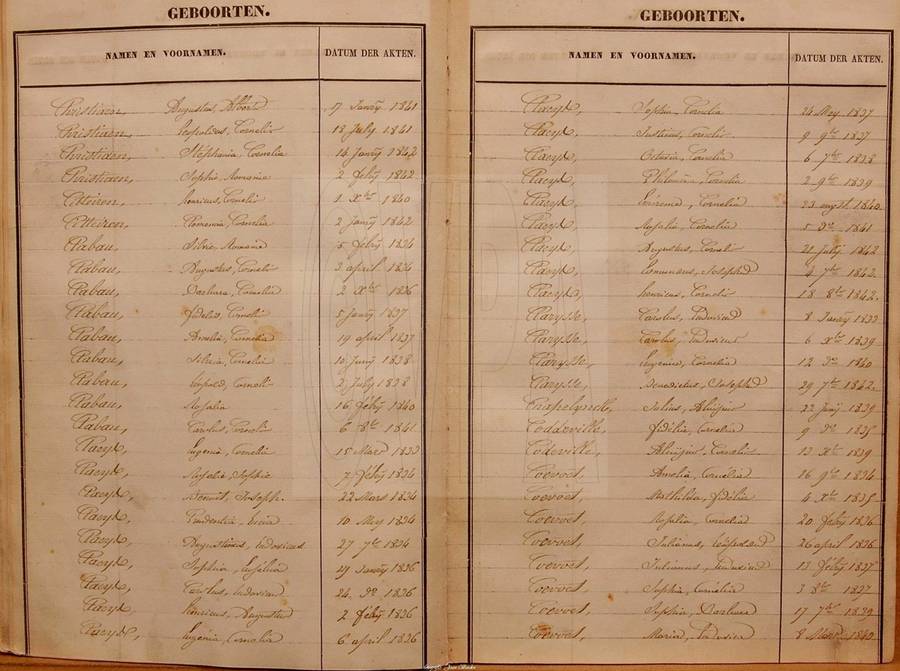 GEBOORTEN.
NAMEN EN VOORNAMEN. DATUM DER AKTEN.
Christiaen, Augustus, Albert 17 Janry 1841
Christiaen, Leopoldus, Cornelis 13 July 1841
Christiaen, Stéphania, Cornelia 14 Janry 1842
Christiaen, Sophie, Romanie 2 febry 1842
Henricus, Cornelis 1 Xbre 1840
Cornelia 2 Janry 1842
Clabau, Silvie, Romanie 5 febry 1834
Clabau, Augustus, Corneli 3 april 1836
Clabau, Barbara, Cornelia 2 Xbre 1836
Clabau, fidelis, Corneli 5 janry 1837
Clabau, Amelia, Cornelia 19 april 1837
Clabau, Silvia, Cornelia 1838
Clabau, Leopold, Corneli 2 July 1838
Clabau, Rosalia 16 febry 1840
Clabau, Carolus, Cornelis 6 8bre 1841
Claeys, Eugenia, Cornelia 15 Mars 1833
Claeys, Rosalia, Sophie 7 febry 1834
Claeys, Benoit, Joseph. 22 Mars 1834
Claeys, Prudentia, Lucia 10 Mey 1834
Claeys, Augustinus, Ludovicus 27 7bre 1834
Claeys, Sophia, Eugélia 29 Janry 1836
Claeys, Carolus, Ludovicus 24 do 1836
Claeys, Henricus, Augustus 2 febry 1836
Claeys, Eugenia, Cornelia 6 april 1836
GEBOORTEN.
NAMEN EN VOORNAMEN. DATUM DER AKTEN.
Claeys, Sophia, Cornelia 24 May 1837
Claeys, Justinus, Cornelis 9 9bre 1837
Claeys, Octavia, Cornelia 6 7bre 1838
Claeys, Philomena, Cornelia 2 9bre 1839
Claeys, Cornelia 23 augst 1840
Claeys, Rosalia, Cornelia 5 do 1841
Claeys, Augustus, Corneli 21 July 1842
Claeys, Joseph 4 7bre 1842.
Claeys, Henricus, Cornelis 18 8bre 1842.
Claeysse, Carolus, Ludovicus 8 Janry 1833
Claeysse, Carolus, Ludovicus 6 Xbre 1839
Claeysse, Eugenius, Cornelia 12 do 1840
Claeysse, Benedictus, Joseph 29 7bre 1842.
Clapelynck, Julius, Aloïsius 22 1839
Coddeville, fidélia, Cornelia 9 do 1835
Codeville, Aloïsius, Cornelis 13 Xbre 1839
Coevoet, Amelia, Cornélia 16 9bre 1834
Coevoet, Mathilda, fidélia 4 Xbre 1835
Coevoet, Rosalia, Cornelia 20 febry 1836
Coevoet, Julianus, Leopold 26 april 1836
Coevoet, Julianus, Ludovicus 13 febry 1837
Coevoet, Sophia, Cornélia 3 8bre 1837
Coevoet, Sophia, Barbara 17 7bre 1839
Coevoet, Maria, Ludovica 8 Mars 1840